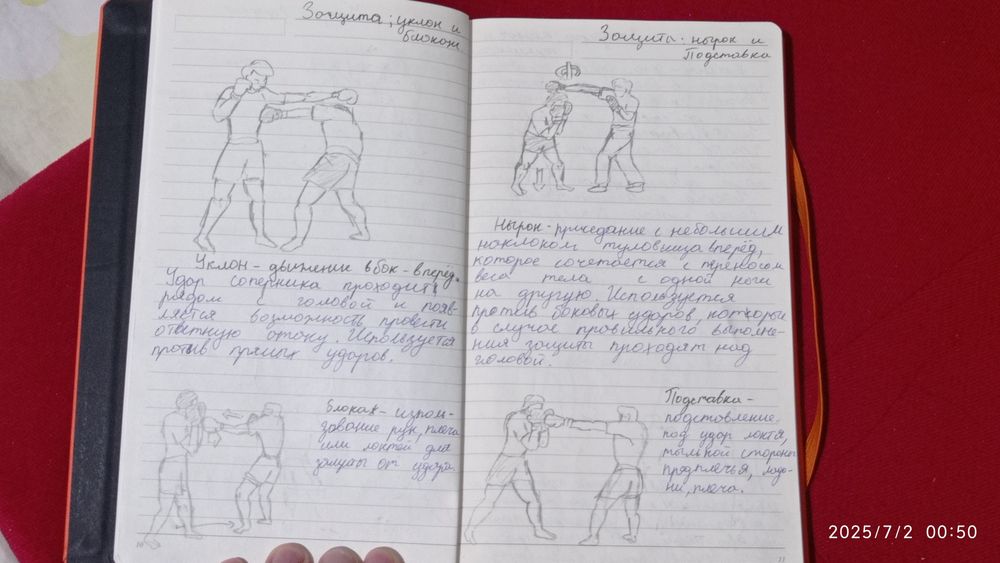 Защита; уклон и
блокаж
Уклон - движение вбок - вперёд.
Удар соперника проходит
рядом с головой и появ-
ляется возможность провести
ответную атаку. Используется
против прямых ударов.
Блокаж - исполь-
зование рук, плеча
или локтей для
защиты от удара.
10
Защита - нырок и
Подставка
Нырок - приседание с небольшим
наклоном туловища вперёд,
которое сочетается с переносом
веса тела с одной ноги
на другую. Используется
против боковых ударов, которые
в случае правильного выполне-
ния защиты проходят над
головой.
Подставка -
подставление
под удар локтя,
тыльной стороны
предплечья, ладо-
ни, плеча.
11
2025/7/2 00:50